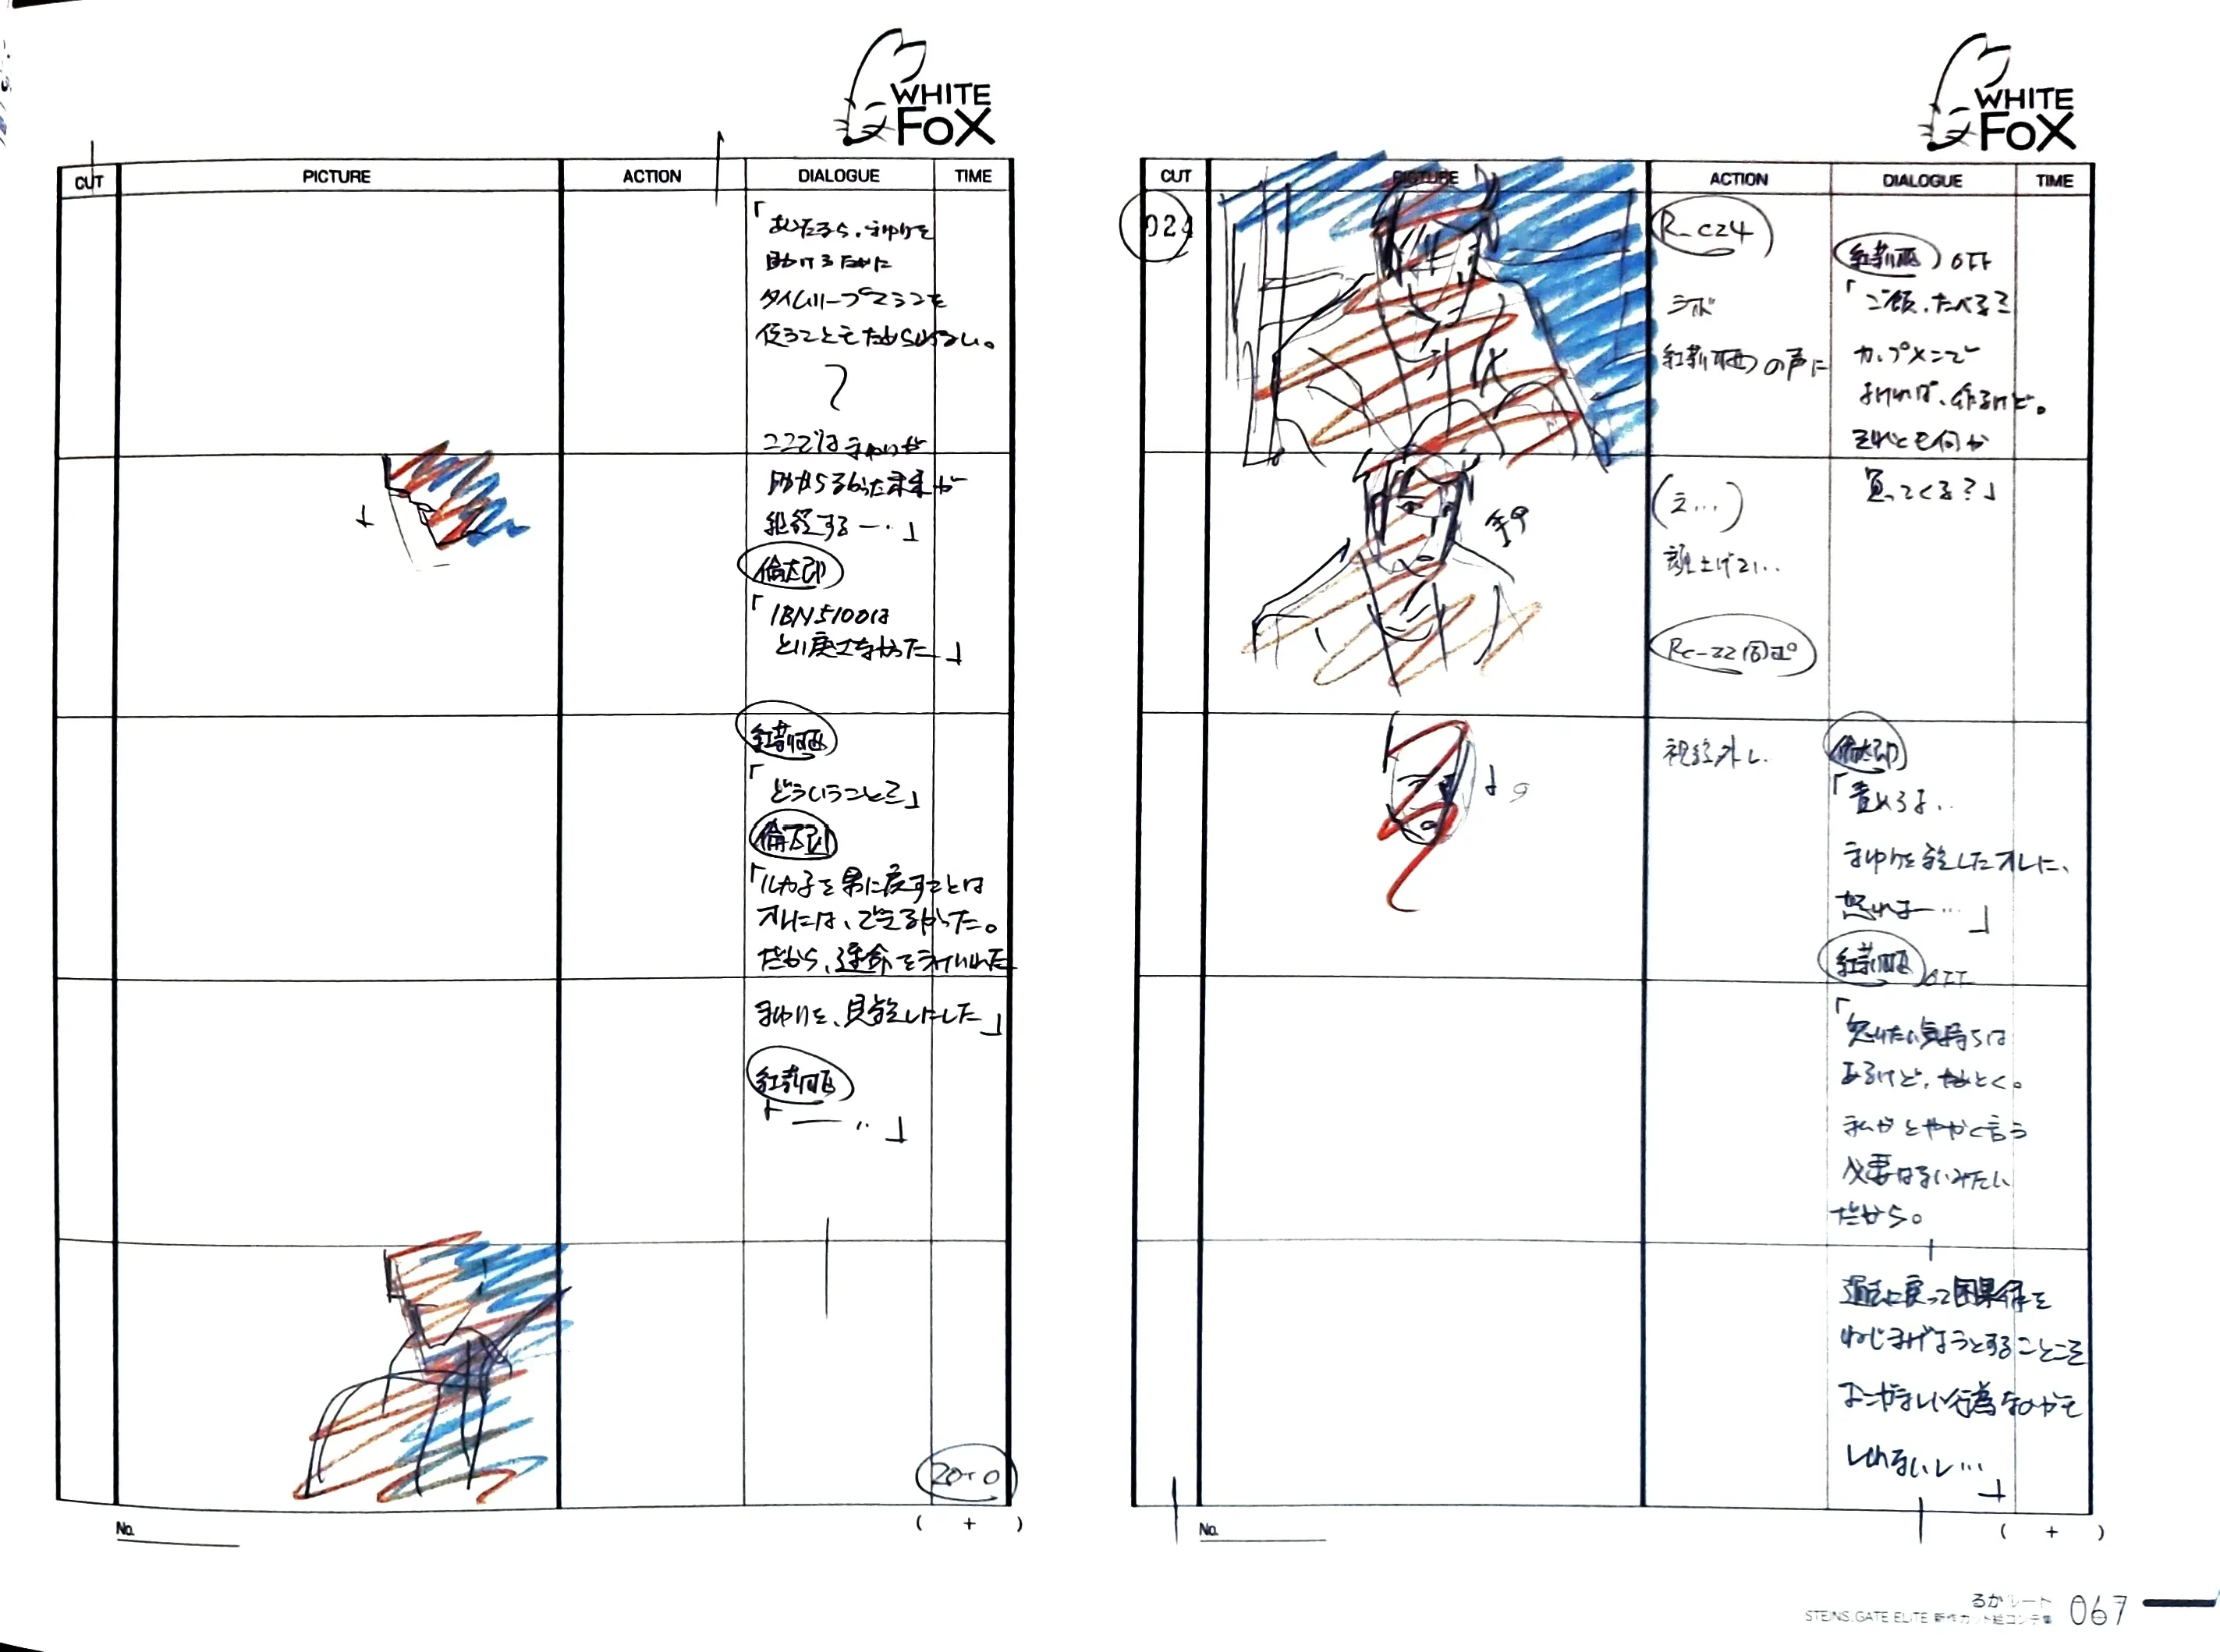 WHITE
FOX
CUT
PICTURE
ACTION
DIALOGUE
TIME
「あなたなら、まゆりを
助けるために
タイムリープマシンを
使うこともためらわない。
ここではまゆりが
助からなかった未来が
確定する―…」
倫太郎
「IBN5100は
とり戻せなかった」
紅莉栖
「どういうこと?」
倫太郎
「ルカ子を男に戻すことは
オレには、できなかった。
だから、運命をうけいれた
まゆりを、見殺しにした」
紅莉栖
「――…」
20+0
No.
( + )
WHITE
FOX
CUT
PICTURE
ACTION
DIALOGUE
TIME
024
R_c24
シボ
紅莉栖の声に
紅莉栖 OFF
「ご飯、たべる?
カップメンで
よければ、作るけど。
それとも何か
買ってくる?」
(え…)
顔上げて…
Rc-22同ポ
視線外し
倫太郎
「責めろよ…
まゆりを殺したオレに、
怒れよ―…」
紅莉栖 OFF
「怒りたい気持ちは
あるけど、やめとく。
私がとやかく言う
必要はないみたい
だから。
過去に戻って因果律を
ねじまげようとすることこそ
おこがましい行為なのかも
しれないし…」
No.
( + )
るかルート
STEINS;GATE ELITE 新作カット絵コンテ集
067